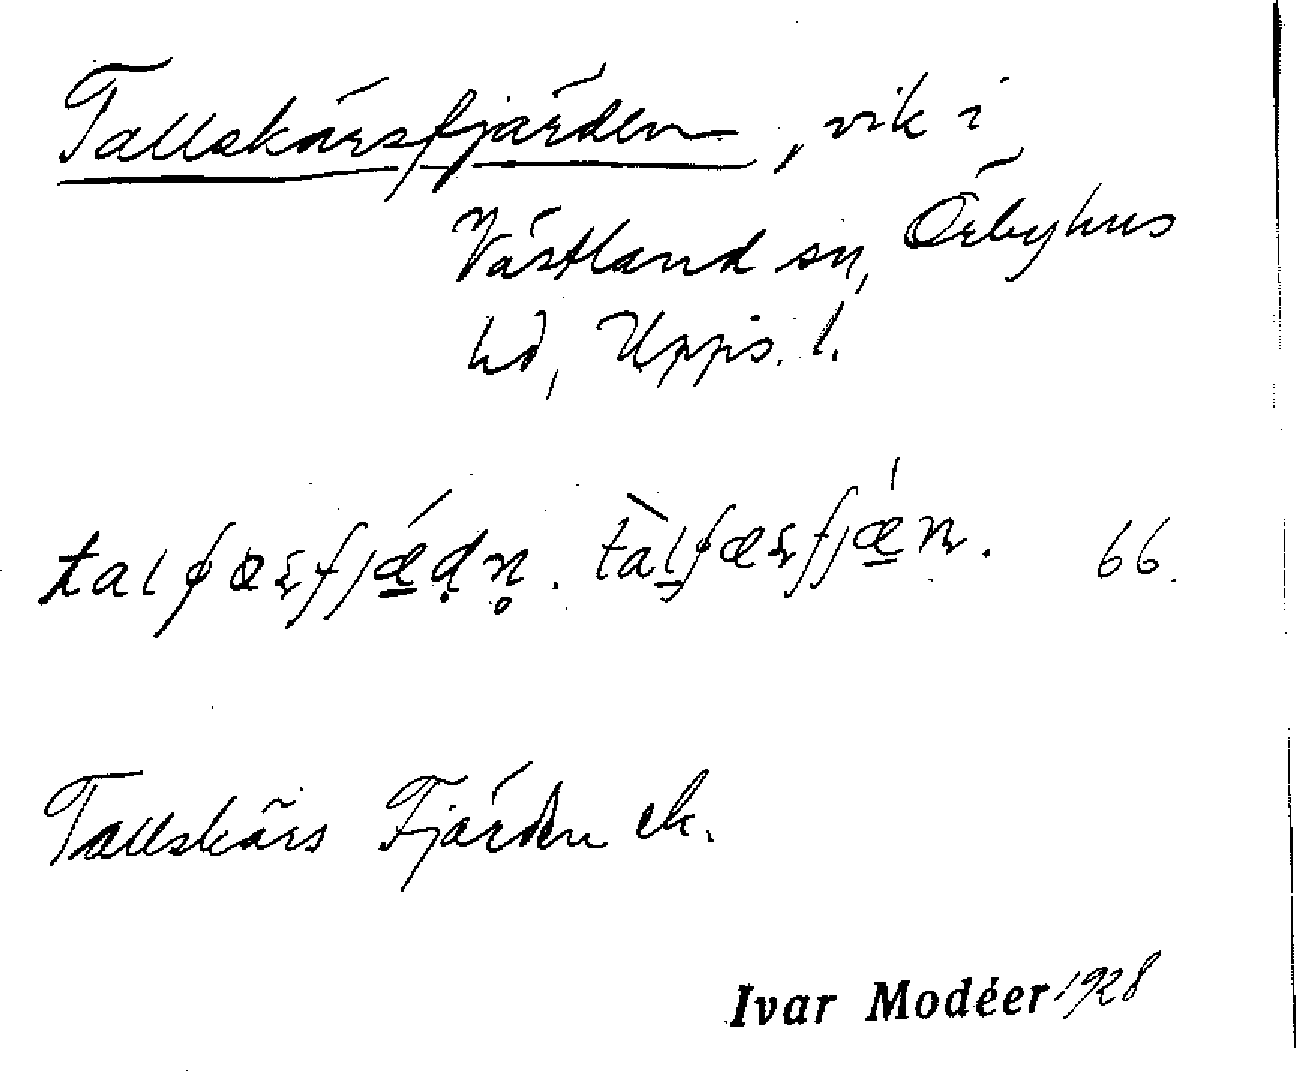 Tallskärsfjärden, vik i
Västland sn, Örbyhus
hd, Upps. l.
66.
Tallskärs Fjärden ek.
Ivar Modéer 1928